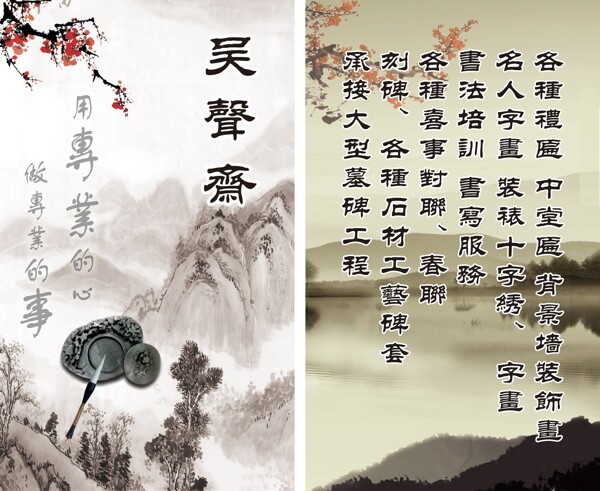 吴聲齋
用專業的心
做專業的事
各種禮匾 中堂匾 背景墙装飾畫
名人字畫 裝裱十字绣、字畫
書法培訓 書寫服務
各種喜事對聯、春聯
刻碑、各種石材工藝碑套
承接大型墓碑工程